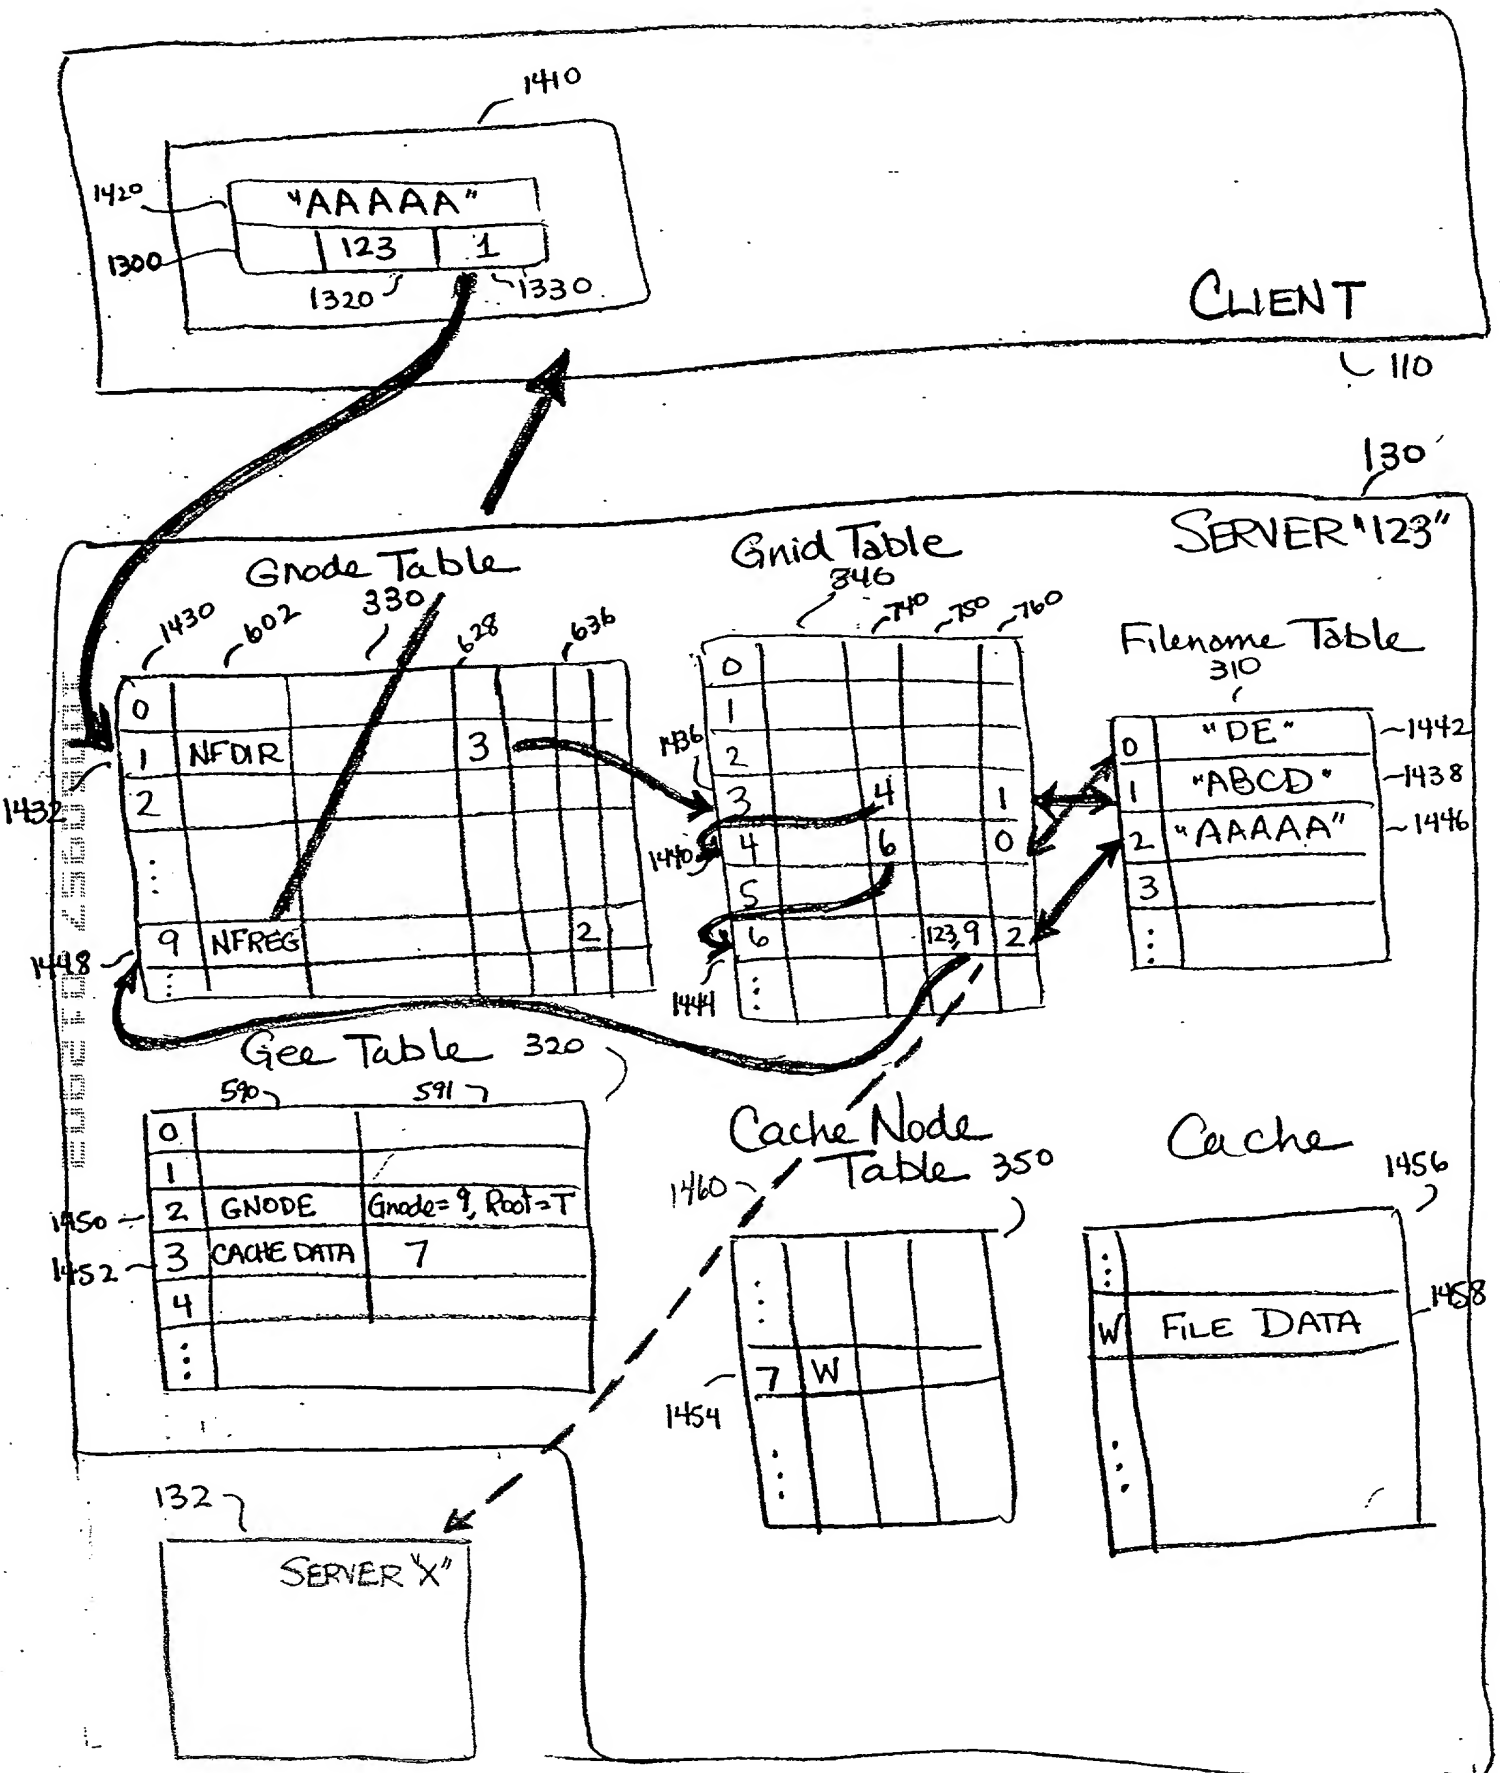 1410
1420
"AAAAA"
1300
123 1
1320 1330
CLIENT
110
130
SERVER "123"
Gnode Table
1430 602 330 628 636
0
1 NFDIR 3
1432
2
9 NFREG 2
1448
Gnid Table
346
740 750 760
0
1
2
1436
3 4 1
1440
4 6 0
5
6 123,9 2
1444
Filename Table
310
0 "DE" 1442
1 "ABCD" 1438
2 "AAAAA" 1446
3
Gee Table 320
590 591
0
1
1450 2 GNODE Gnode=9, Root=T
1452 3 CACHE DATA 7
4
Cache Node
Table 350
1460
7 W
1454
Cache
1456
W FILE DATA
1458
132
SERVER "X"